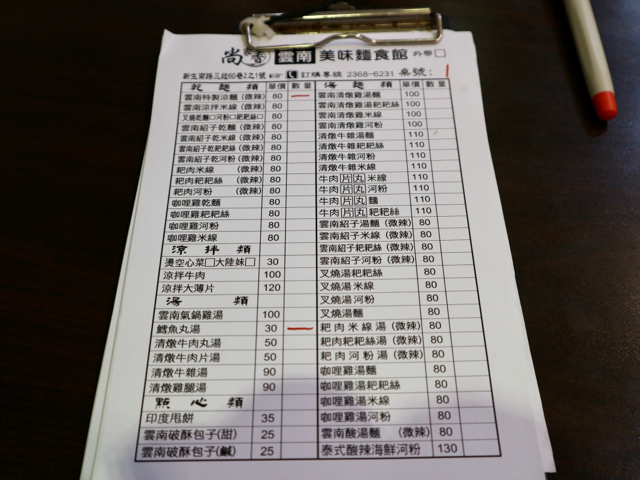 尚香 雲南 美味麵食館 外帶□
新生南路三段60巷2之1號 ☞ 訂購專線 2368-6231 桌號:1
乾麵類 單價 數量
雲南特製涼麵(微辣) 80 一
雲南涼拌米線(微辣) 80
叉燒乾麵□河粉□粑粑絲□ 80
雲南紹子乾麵(微辣) 80
雲南紹子乾米線(微辣) 80
雲南紹子乾粑粑絲(微辣) 80
雲南紹子乾河粉(微辣) 80
粑肉米線 (微辣) 80
粑肉粑粑絲 (微辣) 80
粑肉河粉 (微辣) 80
咖哩雞乾麵 80
咖哩雞粑粑絲 80
咖哩雞河粉 80
咖哩雞米線 80
涼拌類
燙空心菜□大陸妹□ 30
涼拌牛肉 100
涼拌大薄片 120
湯類
雲南氣鍋雞湯 100
鱈魚丸湯 30 一
清燉牛肉丸湯 50
清燉牛肉片湯 50
清燉牛雜湯 90
清燉雞腿湯 90
點心類
印度甩餅 35
雲南破酥包子(甜) 25
雲南破酥包子(鹹) 25
湯麵類 單價 數量
雲南清燉雞湯麵 100
雲南清燉雞湯粑粑絲 100
雲南清燉雞河粉 100
雲南清燉雞米線 100
清燉牛雜湯麵 110
清燉牛雜粑粑絲 110
清燉牛雜河粉 110
清燉牛雜米線 110
牛肉片丸米線 110
牛肉片丸河粉 110
牛肉片丸麵 110
牛肉片丸粑粑絲 110
雲南紹子湯麵(微辣) 80
雲南紹子米線(微辣) 80
雲南紹子粑粑絲(微辣) 80
雲南紹子河粉(微辣) 80
叉燒湯粑粑絲 80
叉燒湯米線 80
叉燒湯河粉 80
叉燒湯麵 80
粑肉米線湯(微辣) 80
粑肉粑粑絲湯(微辣) 80
粑肉河粉湯(微辣) 80
咖哩雞湯麵 80
咖哩雞湯粑粑絲 80
咖哩雞湯米線 80
咖哩雞湯河粉 80
雲南酸湯麵 (微辣) 80
泰式酸辣海鮮河粉 130